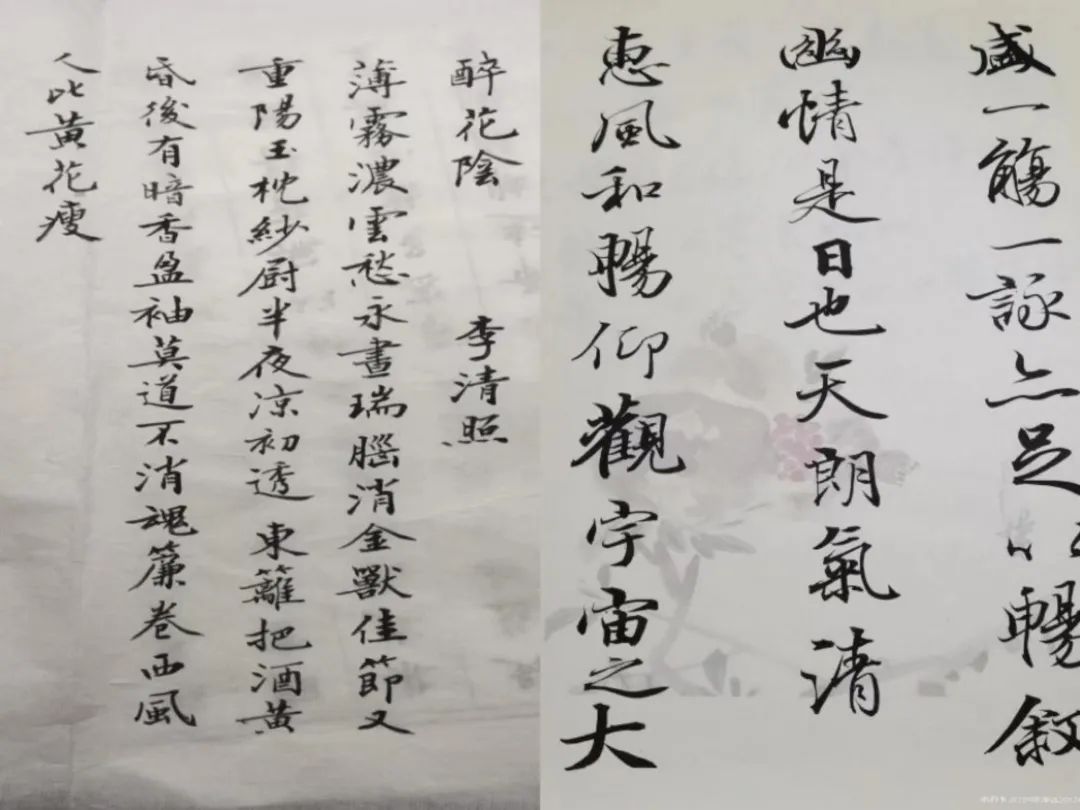 醉花陰 李清照
薄霧濃雲愁永晝瑞腦消金獸佳節又
重陽玉枕紗厨半夜凉初透東籬把酒黃
昏後有暗香盈袖莫道不消魂簾卷西風
人比黃花瘦
盛一觴一詠亦足以暢敘
幽情是日也天朗氣清
惠風和暢仰觀宇宙之大